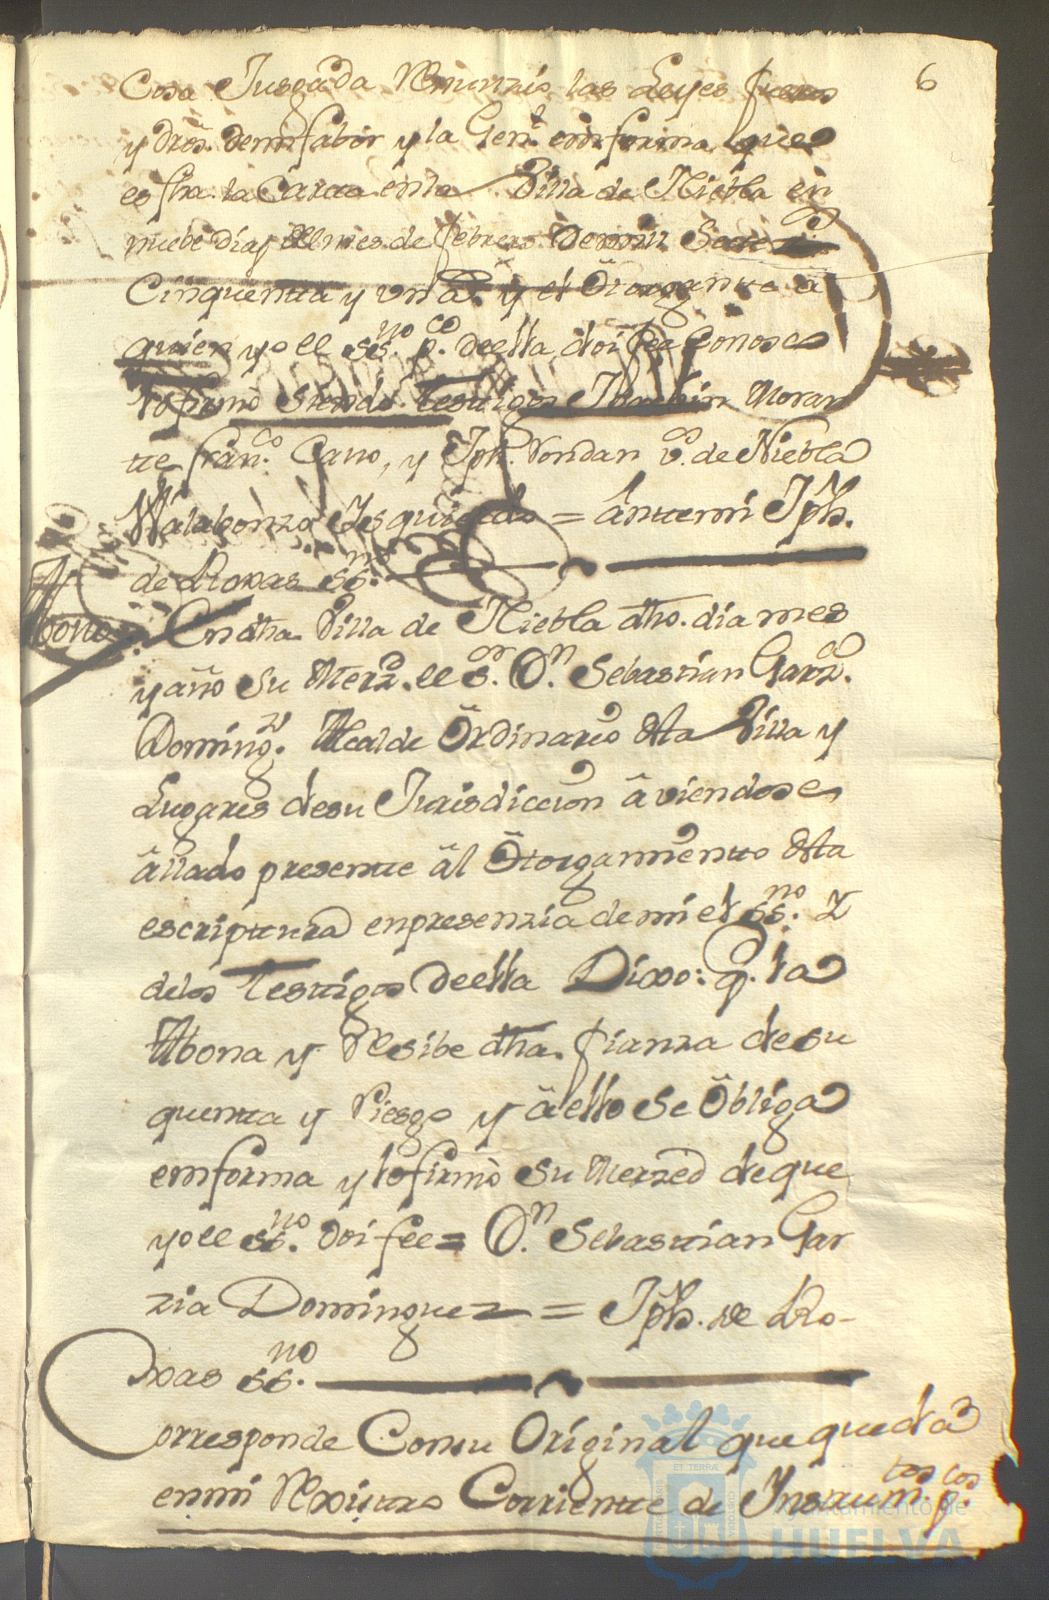 6
Cosa Jusgada Renunzio las Leyes fueros
y dros. demi fabor y la Genl. enforma que
es fha. la Carta enla Villa de Niebla en
nuebe dias del mes de febrero demill Setets.
Cinquenta y un as. y el Otorgante a
quien yo el ssno. pco. deella doi fee Conosco
lo firmo siendo testigos Joachin Moran
te franco. Cano, y Jph. Rondan vs. de Niebla
Walabonzo Izquierdo = Antemi Jph.
de Roxas ssno.
Abono
En dha. Villa de Niebla dho. dia mes
y año Su Merzd. el sor. Dn. Sebastian Garza.
Domingz. Alcalde Ordinario desta Villa y
Lugares desu Jurisdiccion aviendose
allado presente al Otorgamiento desta
escriptura enpresenzia de mi el ssno. Y
delos testigos deella Dixo: q. la
Abona y Resibe dha. fianza de su
quenta y Riesgo y aello se Obliga
enforma y lo firmo Su Merzed de que
yo el ssno. doi fee = Dn. Sebastian Gar
zia Dominguez = Jph. de Ro-
xas ssno.
Corresponde Consu Original que queda
enmi Rexistro Corriente de Instrumtos. pcos.
ET TERRÆ
Ayuntamiento de
HUELVA